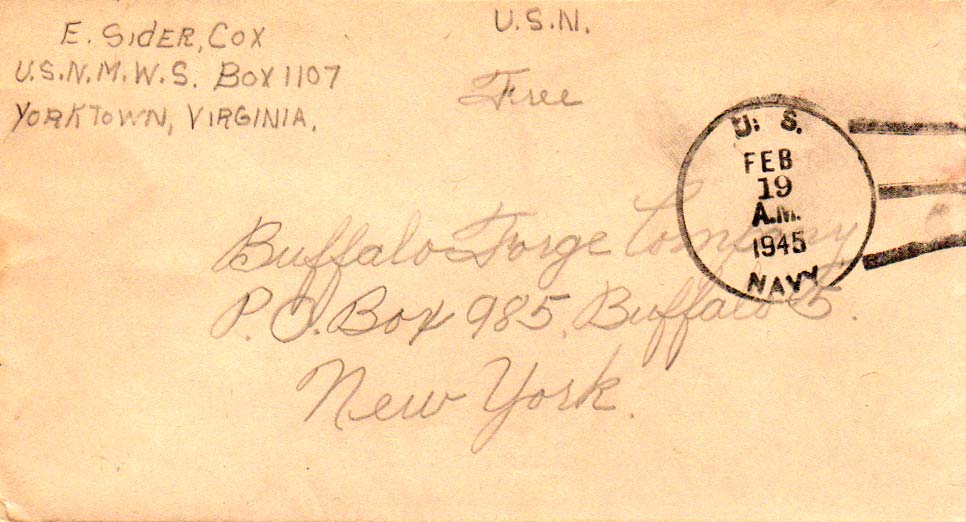 E. SIDER, COX
U.S.N.M.W.S. BOX 1107
YORKTOWN, VIRGINIA.
U.S.N.
Free
U. S.
FEB
19
A.M.
1945
NAVY
Buffalo Forge Company
P.O. Box 985, Buffalo 5.
New York.